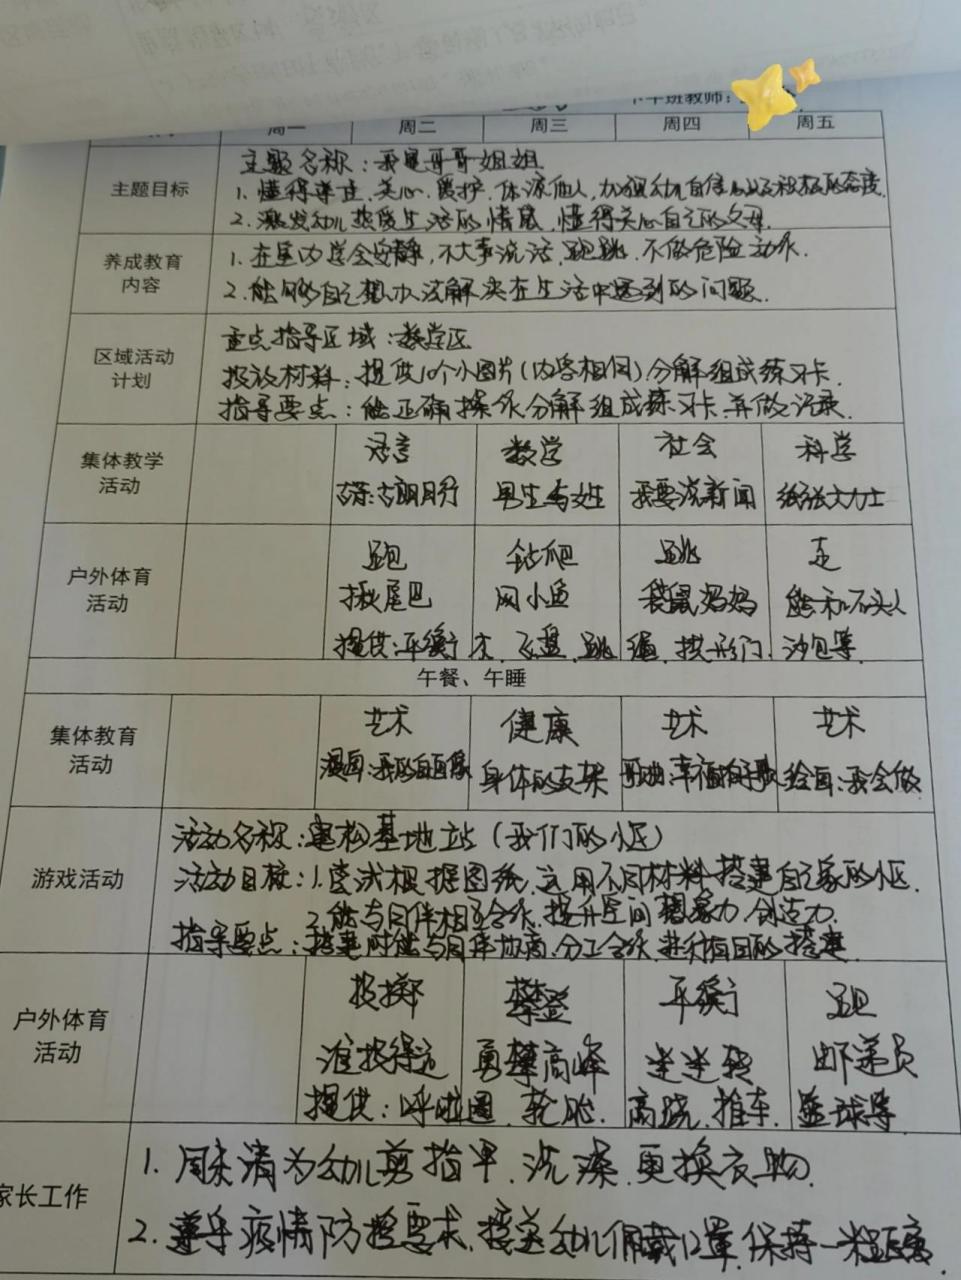 下午班教师：
周一 周二 周三 周四 周五
主题目标
主题名称：我是哥哥姐姐
1. 懂得尊重、关心、爱护、体谅他人，加强幼儿自信以及积极的态度.
2. 激发幼儿热爱生活的情感，懂得关心自己的父母.
养成教育
内容
1. 在室内学会安静，不大声说话、跑跳、不做危险动作.
2. 能够自己想办法解决在生活中遇到的问题.
区域活动
计划
重点指导区域：数学区
投放材料：提供10个小图片(内容相同)分解组成练习卡.
指导要点：能正确操作分解组成练习卡并做记录.
集体教学
活动
语言 数学 社会 科学
古朗月行 男生与女生 我要说新闻 纸张大力士
户外体育
活动
跑 钻爬 跳 走
揪尾巴 网小鱼 袋鼠妈妈 熊和石头人
提供：平衡木、飞盘、跳绳、拱形门、沙包等.
午餐、午睡
集体教育
活动
艺术 健康 艺术 艺术
漫画：我的自画像 身体的支架 歌曲：幸福拍手歌 绘画：我会做
游戏活动
活动名称：建构基地站(我们的小区)
活动目标：1. 尝试根据图纸，运用不同材料搭建自己家的小区.
2. 能与同伴相互合作，提升空间想象力、创造力.
指导要点：搭建时能与同伴协商、分工合作，进行有目的搭建
户外体育
活动
投掷 攀登 平衡 跑
谁投得远 勇攀高峰 半半转 邮递员
提供：呼啦圈、轮胎、高跷、推车、篮球等
家长工作
1. 周末请为幼儿剪指甲、洗澡、更换衣物.
2. 遵守疫情防控要求，接送幼儿佩戴口罩，保持一米距离.